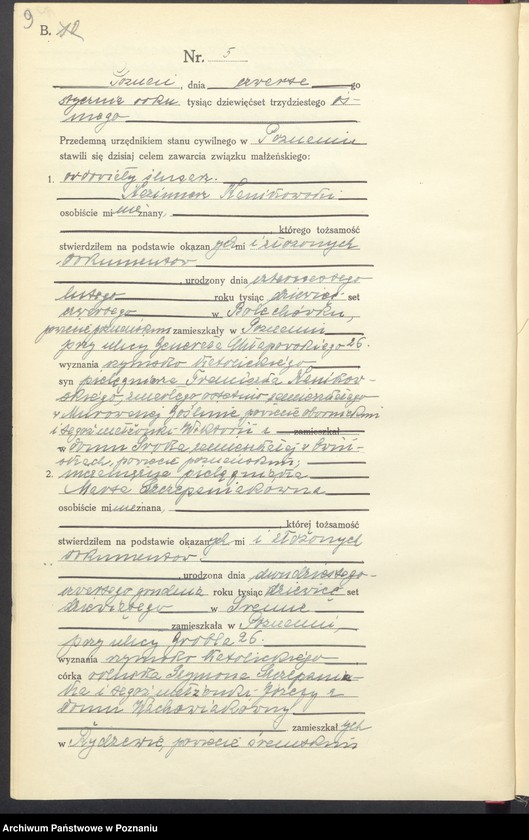 9
B.
Nr. 5
Poznań, dnia czwarte go
stycznia roku tysiąc dziewięćset trzydziestego ós-
mego
Przedemną urzędnikiem stanu cywilnego w Poznaniu
stawili się dzisiaj celem zawarcia związku małżeńskiego:
1. owdowiały ślusarz
Kazimierz Kenikowski
osobiście mi nieznany,
, którego tożsamość
stwierdziłem na podstawie okazanych mi i złożonych
dokumentów
, urodzony dnia czternastego
lutego roku tysiąc dziewięć set
czwartego w Bolechówku,
powiecie poznańskim zamieszkały w Poznaniu
przy ulicy Generała Chłapowskiego 26.
wyznania rzymsko katolickiego,
syn pielęgniarza Franciszka Kenikow-
skiego, zmarłego, ostatnio zamieszkałego
w Murowanej Goślinie powiecie obornickim
i tegoż małżonki Wiktorii z zamieszkał
w domu Sroka zamieszkałej w Owiń-
skach, powiecie poznańskim;
2. niezamężna pielęgniarka
Marta Szczepaniakówna
osobiście mi nieznana,
, której tożsamość
stwierdziłem na podstawie okazanych mi i złożonych
dokumentów
, urodzona dnia dwudziestego-
czwartego grudnia roku tysiąc dziewięć set
dziewiątego w Śremie
zamieszkała w Poznaniu,
przy ulicy Grobla 26.
wyznania rzymsko katolickiego
córka rolnika Szczepania-
ka i tegoż małżonki Józefy z
domu Wachowiakówny
zamieszkałych
w powiecie śremskim
Archiwum Państwowe w Poznaniu